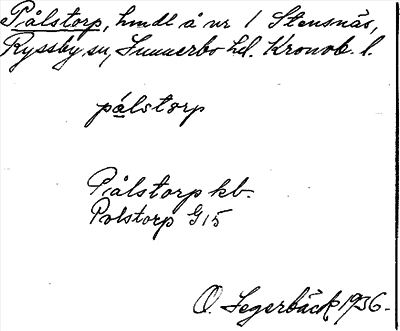 Pålstorp, hmdt å nr 1 Stensnäs,
Ryssby sn, Sunnerbo hd. Kronob. l.
pålstorp
Pålstorp kb.
Polstorp G15
O. Segerbäck 1936.